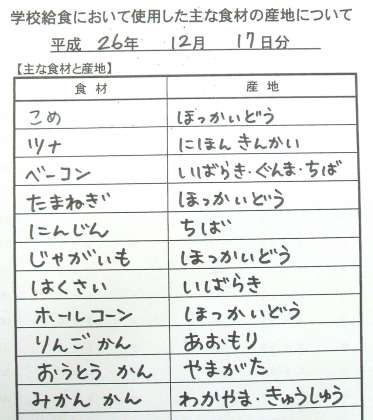 学校給食において使用した主な食材の産地について
平成 26年 12月 17日分
【主な食材と産地】
食材 産地
こめ ほっかいどう
ツナ にほんきんかい
ベーコン いばらき・ぐんま・ちば
たまねぎ ほっかいどう
にんじん ちば
じゃがいも ほっかいどう
はくさい いばらき
ホールコーン ほっかいどう
りんごかん あおもり
おうとう かん やまがた
みかん かん わかやま・きゅうしゅう